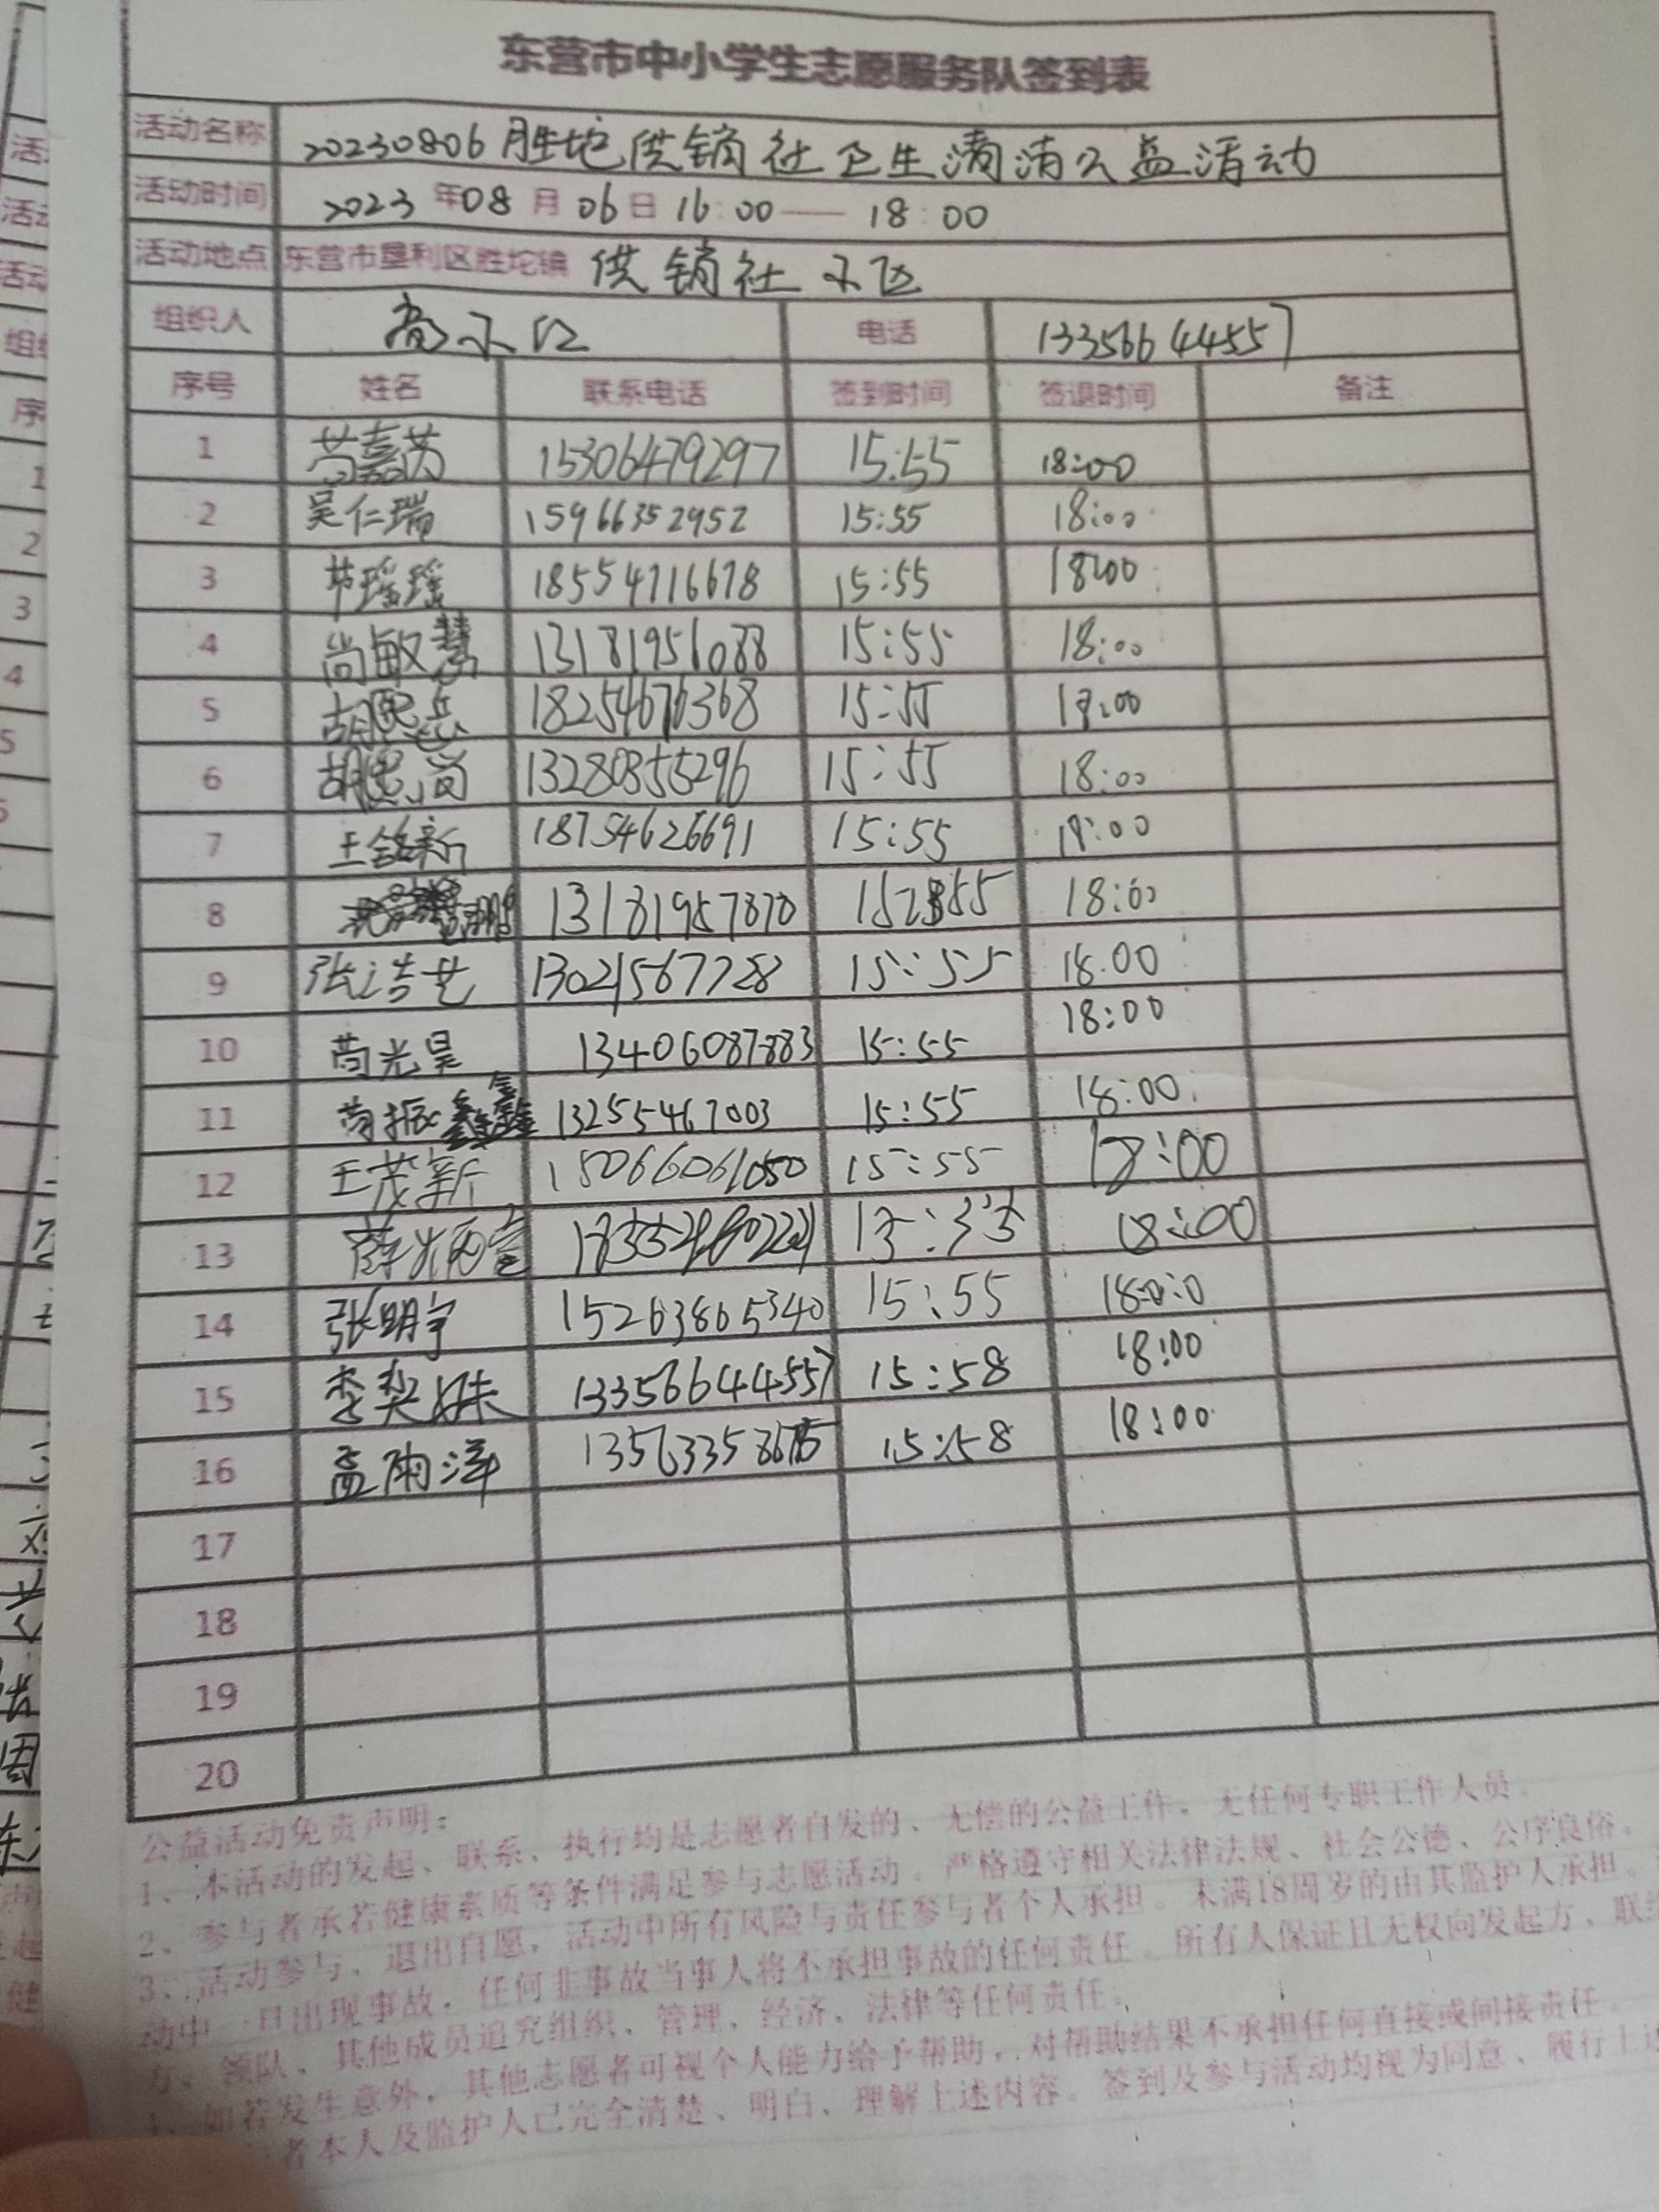 东营市中小学生志愿服务队签到表
活动名称 20230806胜坨供销社卫生清洁公益活动
活动时间 2023年08月06日16:00——18:00
活动地点 东营市垦利区胜坨镇 供销社小区
组织人 电话 13356644557
序号 姓名 联系电话 签到时间 签退时间 备注
1 15306479297 15:55 18:00
2 吴仁瑞 15966352952 15:55 18:00
3 瑶瑶 18554716678 15:55 18:00
4 尚敏慧 13181956088 15:55 18:00
5 胡 18254676368 15:55 18:00
6 胡 尚 13280355296 15:55 18:00
7 王铭新 18754626691 15:55 18:00
8 13181957870 18:00
9 张浩艺 13021567728 15:55 18:00
10 苟光昊 13406087883 15:55 18:00
11 苟振鑫 13255467003 15:55 18:00
12 王茂新 15066061050 15:55 18:00
13 薛 18:00
14 张明宇 15263865340 15:55 18:00
15 13356644557 15:58 18:00
16 孟雨洋 15:58 18:00
17
18
19
20
公益活动免责声明：
1、本活动的发起、联系、执行均是志愿者自发的、无偿的公益工作，无任何专职工作人员。
2、参与者承若健康素质等条件满足参与志愿活动。严格遵守相关法律法规、社会公德、公序良俗。
3、活动参与、退出自愿，活动中所有风险与责任参与者个人承担。未满18周岁的由其监护人承担。
动中一旦出现事故，任何非事故当事人将不承担事故的任何责任。所有人保证且无权向发起方、联络
方、领队、其他成员追究组织、管理、经济、法律等任何责任。
如若发生意外，其他志愿者可视个人能力给予帮助，对帮助结果不承担任何直接或间接责任。
者本人及监护人已完全清楚、明白、理解上述内容。签到及参与活动均视为同意、履行上述